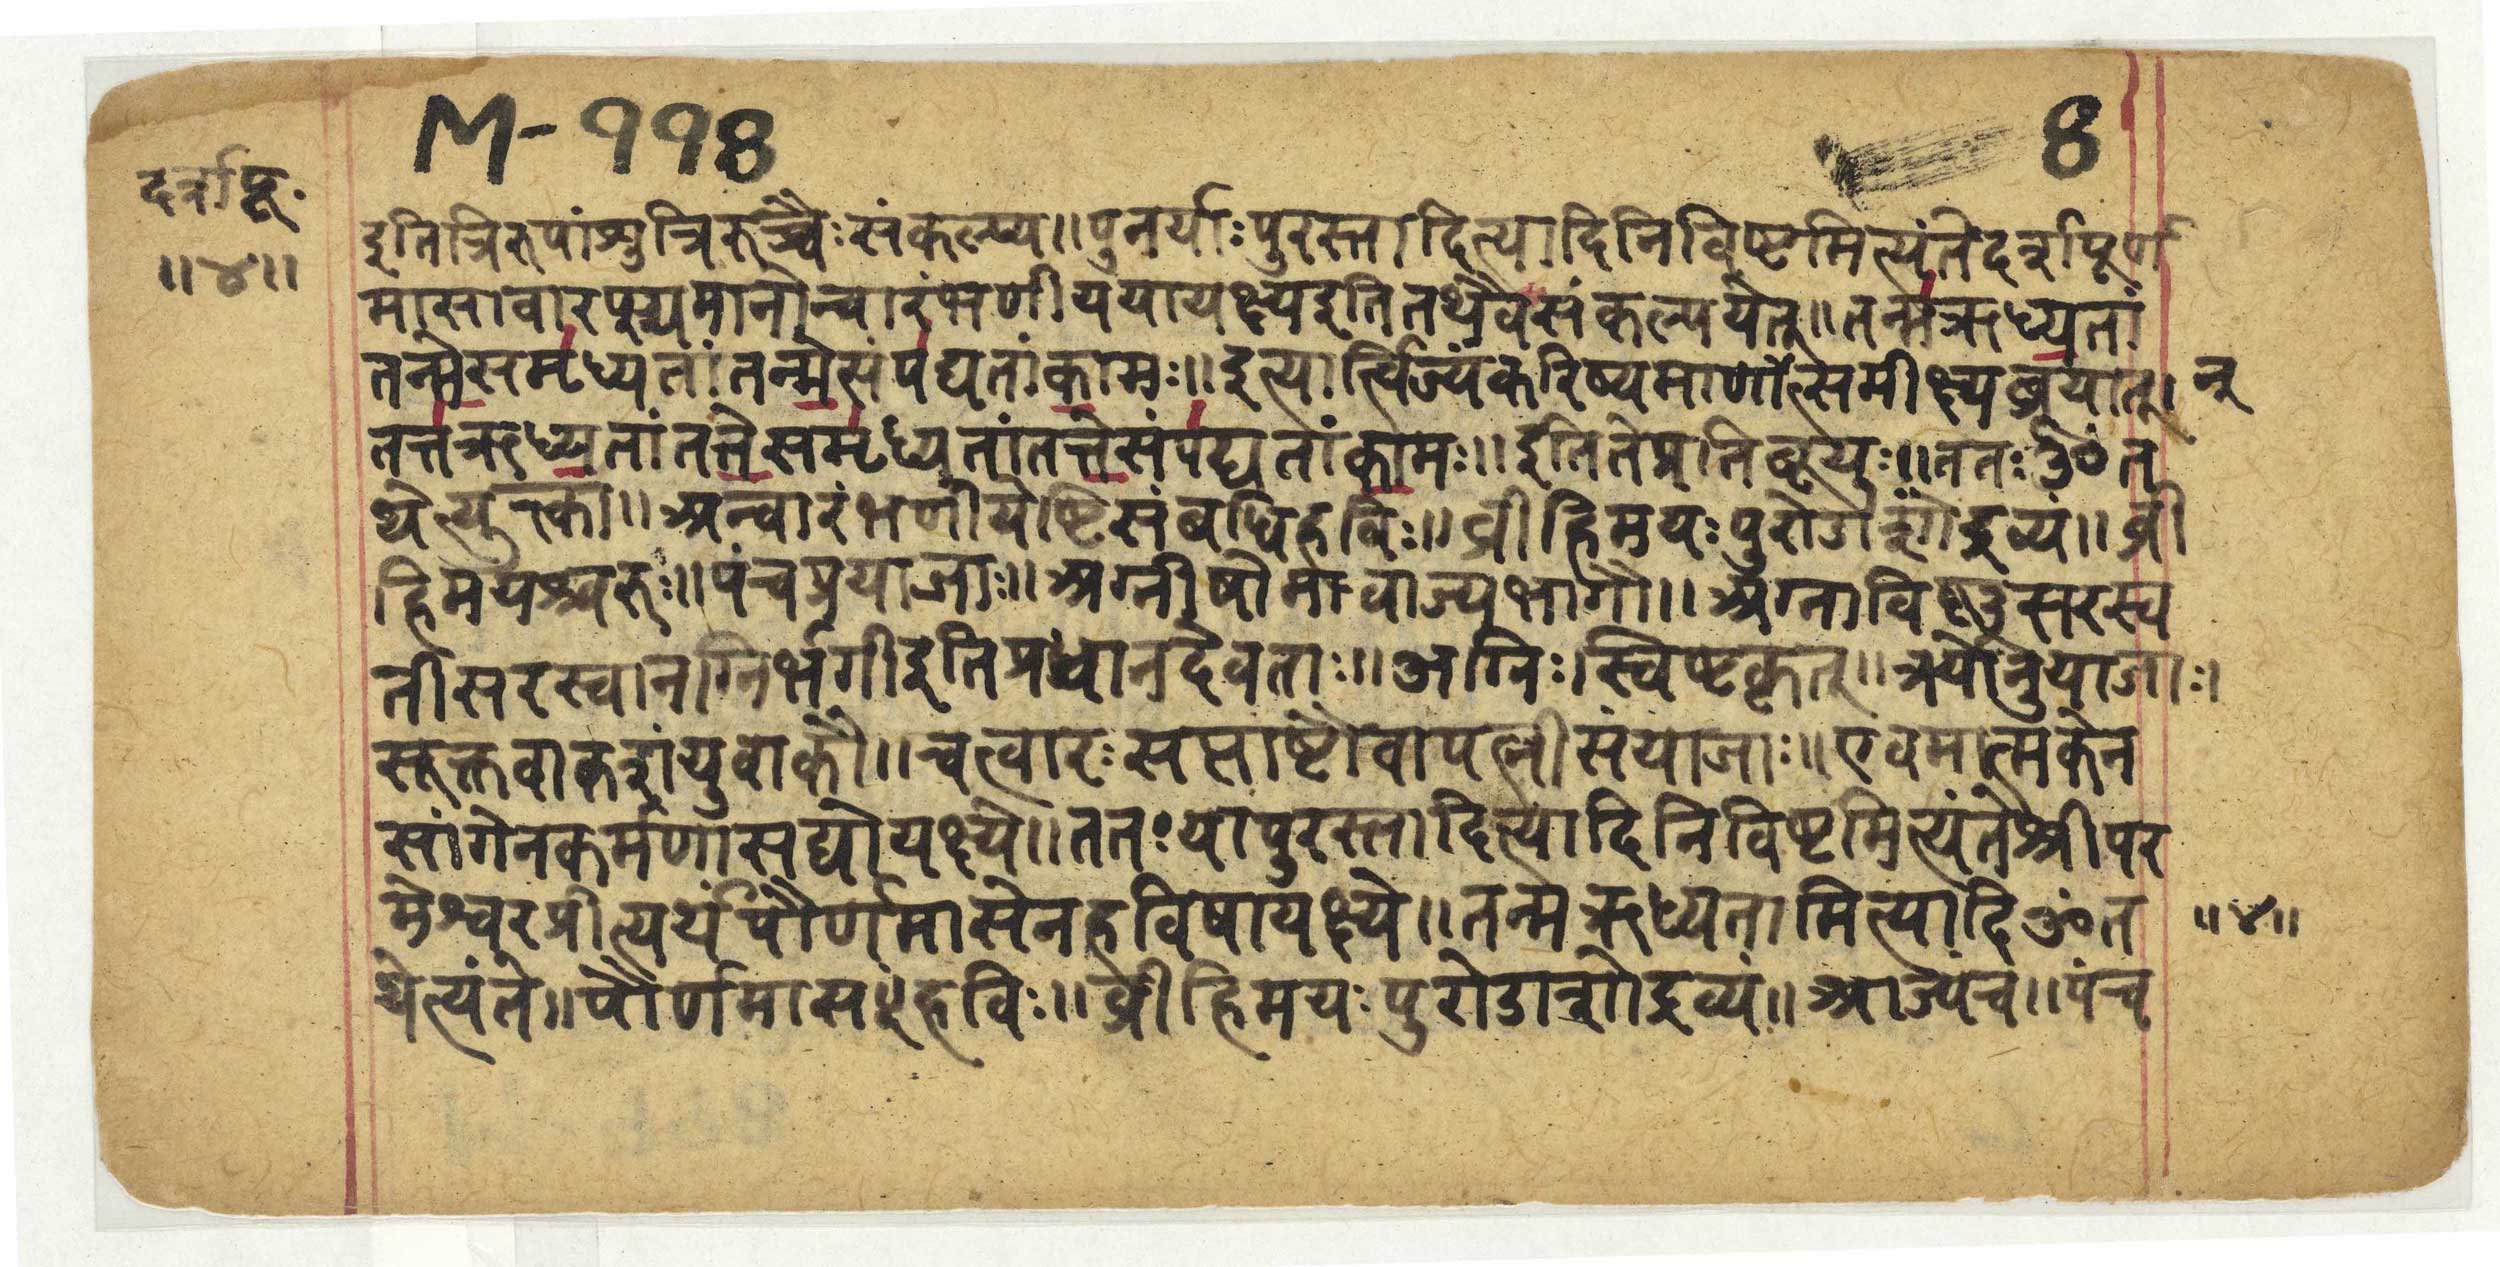 M-११४
४
दर्शपू॰
॥४॥
इतित्रिरुपांशुत्रिरुच्चैःसंकल्प्य॥पुनर्याःपुरस्तादित्यादिनिविष्टमित्यंतेदर्शपूर्ण
मासावारप्स्यमानोन्वारंभणीययायक्ष्यइतितथैवसंकल्पयेत्॥तन्मऋध्यतां
तन्मेसमृध्यतांतन्मेसंपद्यतांकामः॥इत्यार्त्विज्यंकरिष्यमाणांत्समीक्ष्यब्रूयात्।
न्
तत्तऋध्यतांतत्तेसमृध्यतांतत्तेसंपद्यतांकामः॥इतितेप्रतिब्रूयुः॥ततःॐत
थेत्युत्क्का॥अन्वारंभणीयेष्टिसंबधिहविः॥व्रीहिमयःपुरोडाशोद्रव्यं॥व्री
हिमयश्चरुः॥पंचप्रयाजाः॥अग्नीषोमावाज्यभागौ॥अग्नाविष्णूसरस्व
तीसरस्वानग्निर्भगीइतिप्रधानदेवताः॥अग्निःस्विष्टकृत्॥त्रयोनुयाजाः।
सूक्तवाकशंयुवाकौ॥चत्वारःसप्ताष्टौवापत्नीसंयाजाः॥एवमात्मकेन
सांगेनकर्मणासद्योयक्ष्ये॥ततःयापुरस्तादित्यादिनिविष्टमित्यंतेश्रीपर
मेश्वरप्रीत्यर्थंपौर्णमासेनहविषायक्ष्ये॥तन्मऋध्यतामित्यादिॐत
॥४॥
थेत्यंते॥पौर्णमासꣳहविः॥व्रीहिमयःपुरोडाशोद्रव्यं॥आज्यंच॥पंच